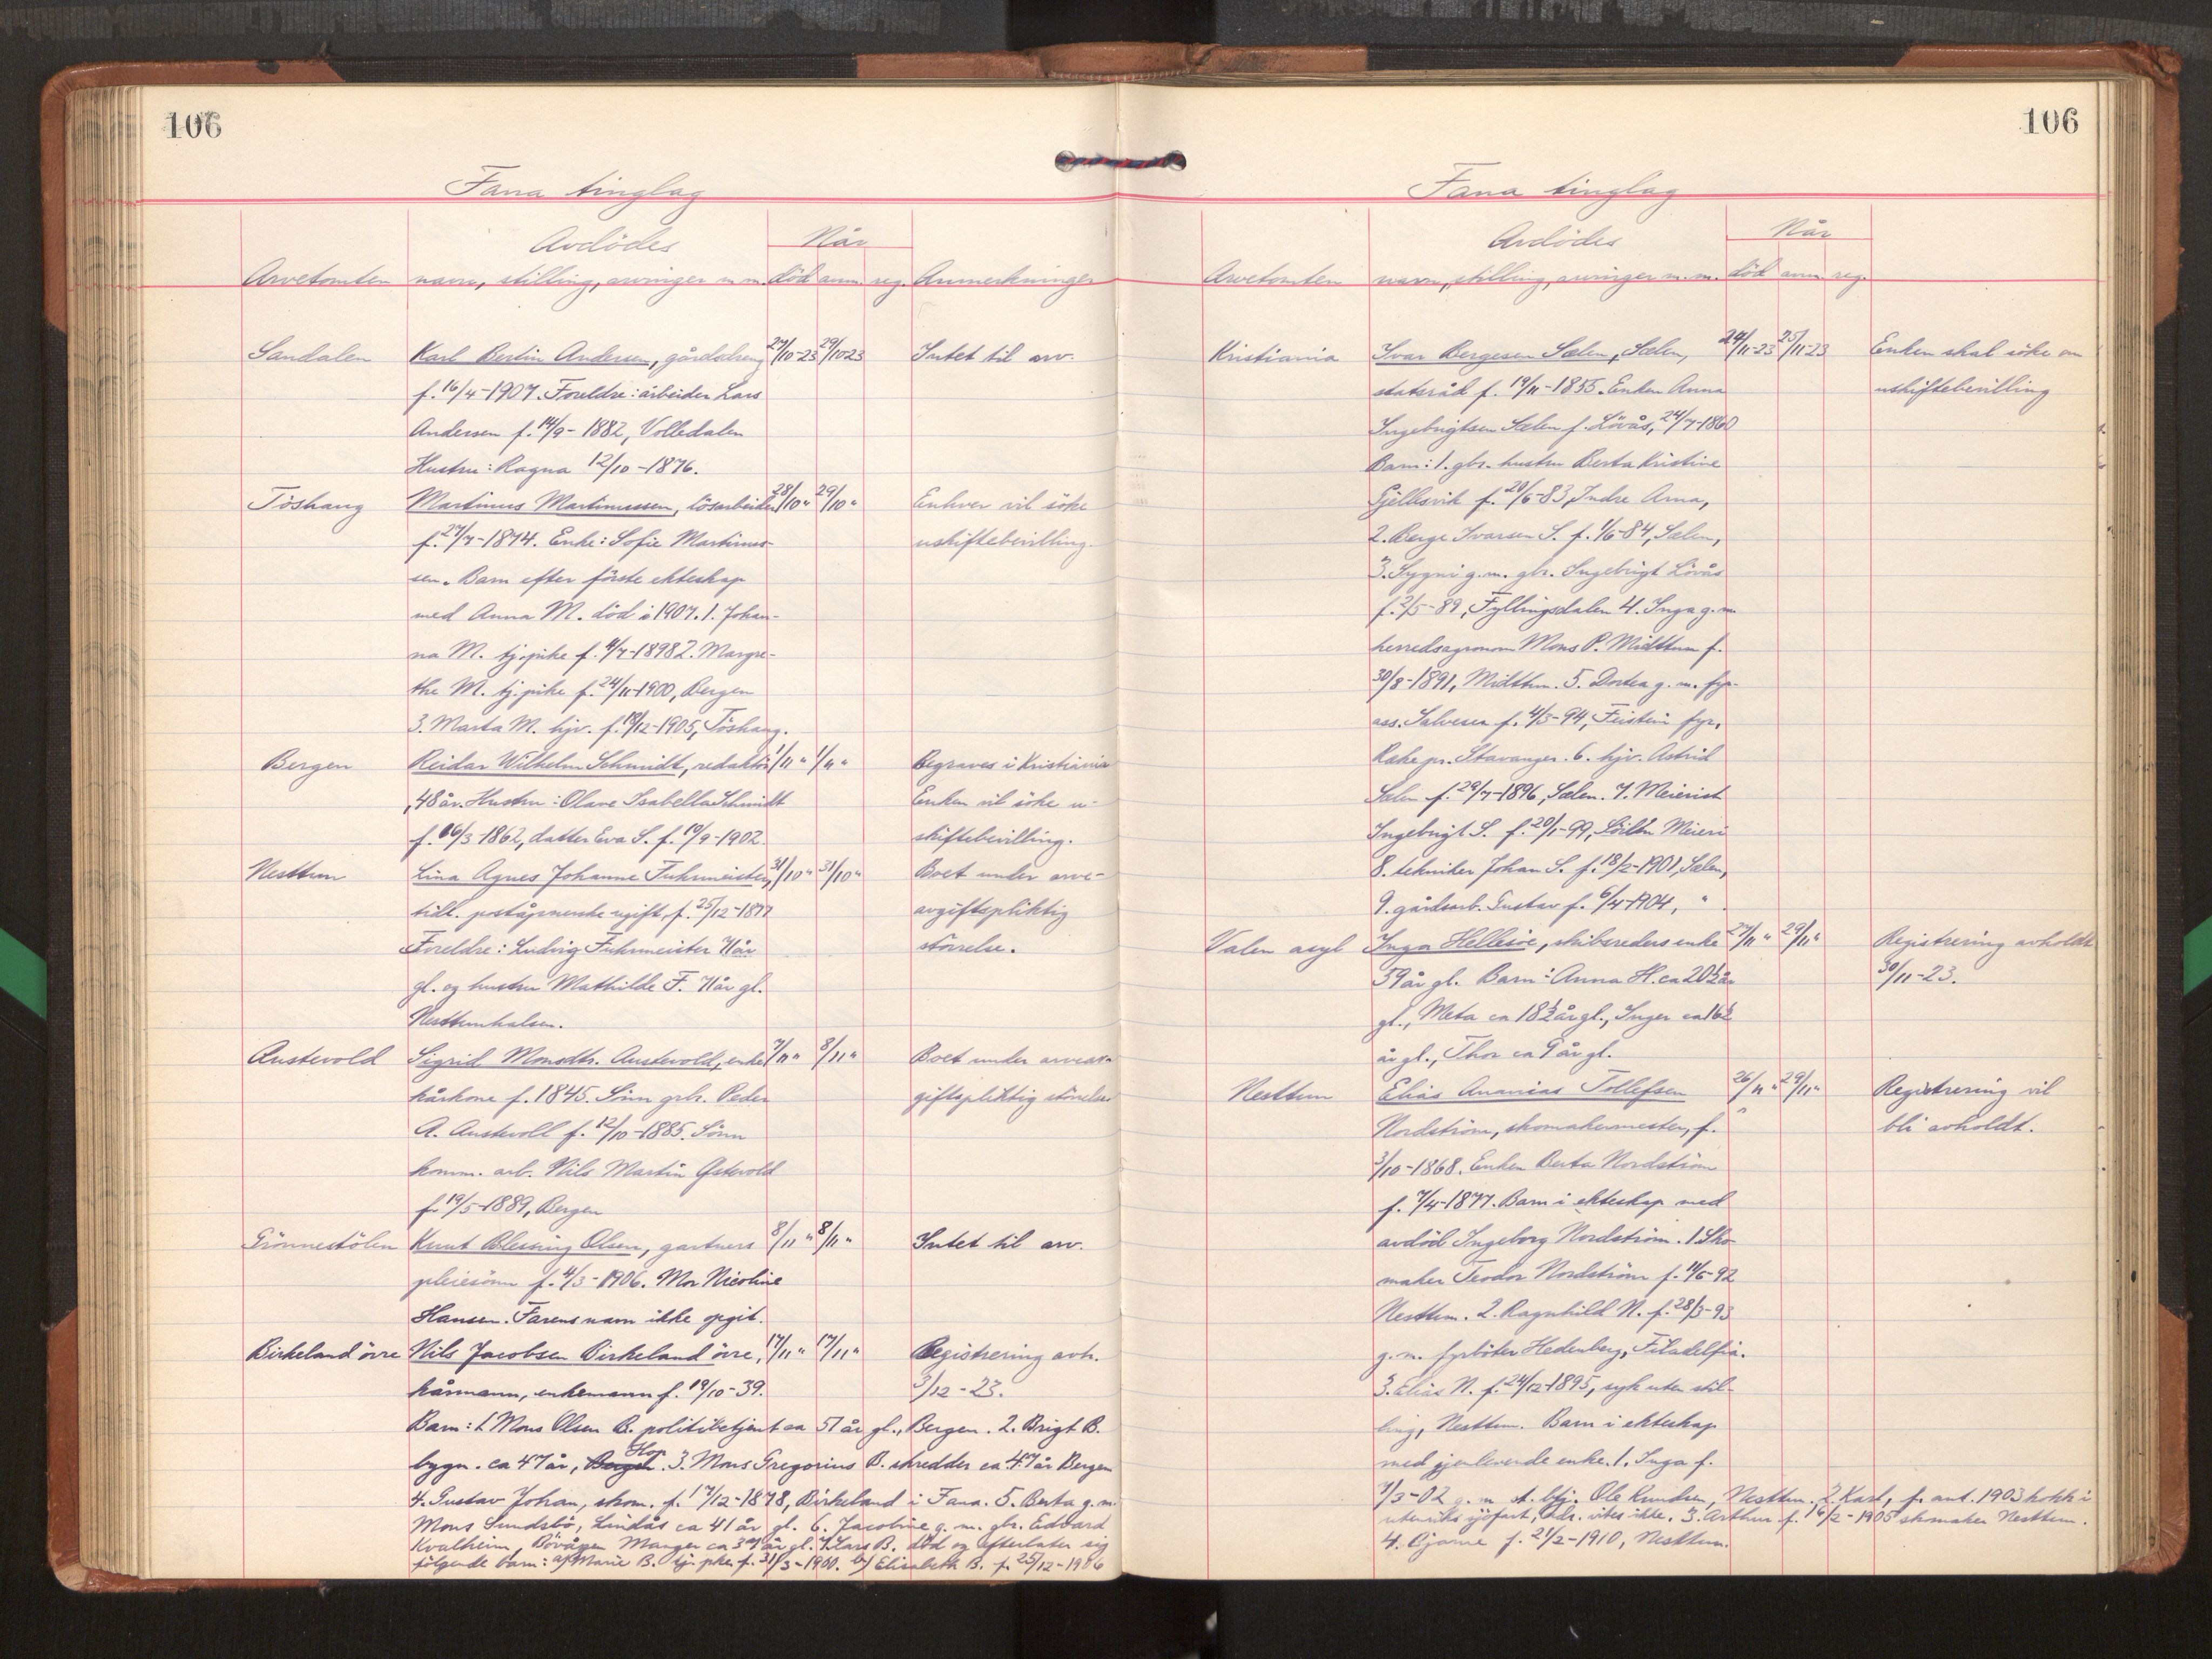 106
Fana tinglag
Avdödes
Når
Arvetomten navn, stilling, arvinger m.m. död anm. reg. Anmerkninger
Sandalen Karl Bertin Andersen, gårdsdreng 29/10-23 29/10-23 Intet til arv.
f. 16/4-1907. Foreldre: arbeider Lars
Andersen f. 14/9-1882, Volledalen
Hustru: Ragna 12/10-1876.
Töshang Martinus Martinussen, lösarbeider 28/10" 29/10" Enhver vil söke
f. 27/7-1874. Enke: Sofie Martinus- uskiftebevilling.
sen. Barn efter förste ekteskap
med Anna M. död i 1907. 1. Johan-
na M. tj.pike f. 4/7-1898 2. Margre-
the M. tj. pike f. 24/11-1900, Bergen
3. Marta M. hjv. f. 18/12-1905, Töshang.
Bergen Reidar Wilhelm Schmidt, redaktör 1/11" 1/11" Begraves i Kristiania
48 år. Hustru: Olave Isabella Schmidt Enken vil söke u-
f. 16/3-1862, datter Eva S. f. 19/9-1902. skiftebevilling.
Nesttun Lina Agnes Johanne Fuhrmeister, 31/10" 31/10" Boet under arve-
tidl. poståpnerske ugift, f. 25/12-1877 avgiftspliktig
Foreldre: Ludvig Fuhrmeister 71 år störrelse.
gl. og hustru Mathilde F. 71 år gl.
Nesttunhalsen.
Austevold Sigrid Monsdtr. Austevold, enke 7/11" 8/11" Boet under arveav-
kårkone f. 1845. Sönn grbr. Peder giftspliktig störrelse
A. Austevoll f. 12/10-1885. Sönn
komm. arb. Nils Martin Østevold
f. 19/5-1889, Bergen
Grönnestölen Knut Blessing Olsen, gartners 8/11" 8/11" Intet til arv.
pleiesönn f. 4/3-1906. Mor Nicoline
Hansen. Farens navn ikke opgit.
Birkeland övre Nils Jacobsen Birkeland övre, 17/11" 17/11" Registrering avh.
kårmann, enkemann f. 19/10-39. 3/12-23.
Barn: 1. Mons Olsen B. politibetjent ca 51 år gl., Bergen. 2. Brigt B.
bygn. ca 47 år, Hop. 3. Mons Gregorius B. skredder ca 47 år Bergen
4. Gustav Johan, skom. f. 17/12-1878, Birkeland i Fana. 5. Berta g.m.
Mons Sundsbö, Lindås ca 41 år gl. 6. Jacobine g. m. gbr. Edvard
Kvalheim, Bövågen Manger ca 39 år gl. 7. Lars B. död og efterlater sig
fölgende barn: a) Marie B. tj. pike f. 31/3-1900. b) Elisabeth B. f. 25/12-1906
106
Fana tinglag
Avdödes
Når
Arvetomten navn, stilling, arvinger m.m. död anm. reg.
Kristiania Ivar Bergesen Sælen, Sælen, 24/11-23 25/11-23 Enken skal söke om
statsråd f. 19/11-1855. Enken Anna uskiftebevilling
Ingebrigtsen Sælen f. Lövås, 24/7-1860
Barn: 1. gbr. hustru Berta Kristine
Gjellesvik f. 20/6-83, Indre Arna,
2. Berge Ivarsen S. f. 1/6-84, Sælen,
3. Sygni g.m. gbr. Ingebrigt Lövås
f. 2/5-89, Fyllingsdalen 4. Inga g.m
herredsagronom Mons P. Midttun f.
30/8-1891, Midttun. 5. Dortea g. m. fyr-
ass. Salvesen f. 4/3-94, Feistein fyr,
Reke pr. Stavanger. 6. hjv. Astrid
Sælen f. 29/7-1896, Sælen. 7. Meierist
Ingebrigt S. f. 20/1-99, Meieri
8. tekniker Johan S. f. 18/2-1901, Sælen,
9. gårdsarb. Gustav f. 6/4-1904, "
Valen asyl Inga Hellesöe, skibsreders enke 27/11" 29/11" Registrering avholdt
59 år gl. Barn: Anna H. ca 20½ år 30/11-23.
gl., Meta ca 18½ år gl., Inger ca 16½
år gl., Thor ca 9 år gl.
Nesttun Elias Ananias Tollefsen 26/11" 29/11" Registrering vil
Nordström, skomakermester, f. bli avholdt.
3/10-1868. Enken Berta Nordström
f. 7/4-1877. Barn i ekteskap med
avdöd Ingeborg Nordström. 1. Sko-
maker Teodor Nordström f. 11/5-92
Nesttun. 2. Ragnhild N. f. 28/3-93
g.m. fyrböter Hedenberg, Filadelfia.
3. Elias N. f. 24/12-1895, syk uten stil-
ling, Nesttun. Barn i ekteskap
med gjenlevende enke. 1. Inga f.
7/3-02 g. m. Ole Knudsen, Nesttun. 2. Karl, f. ant. 1903 kokk i
utenriks sjöfart, adr. vites ikke. 3. Arthur f. 16/2-1905 skomaker Nesttun.
4. Bjarne f. 21/2-1910, Nesttun.